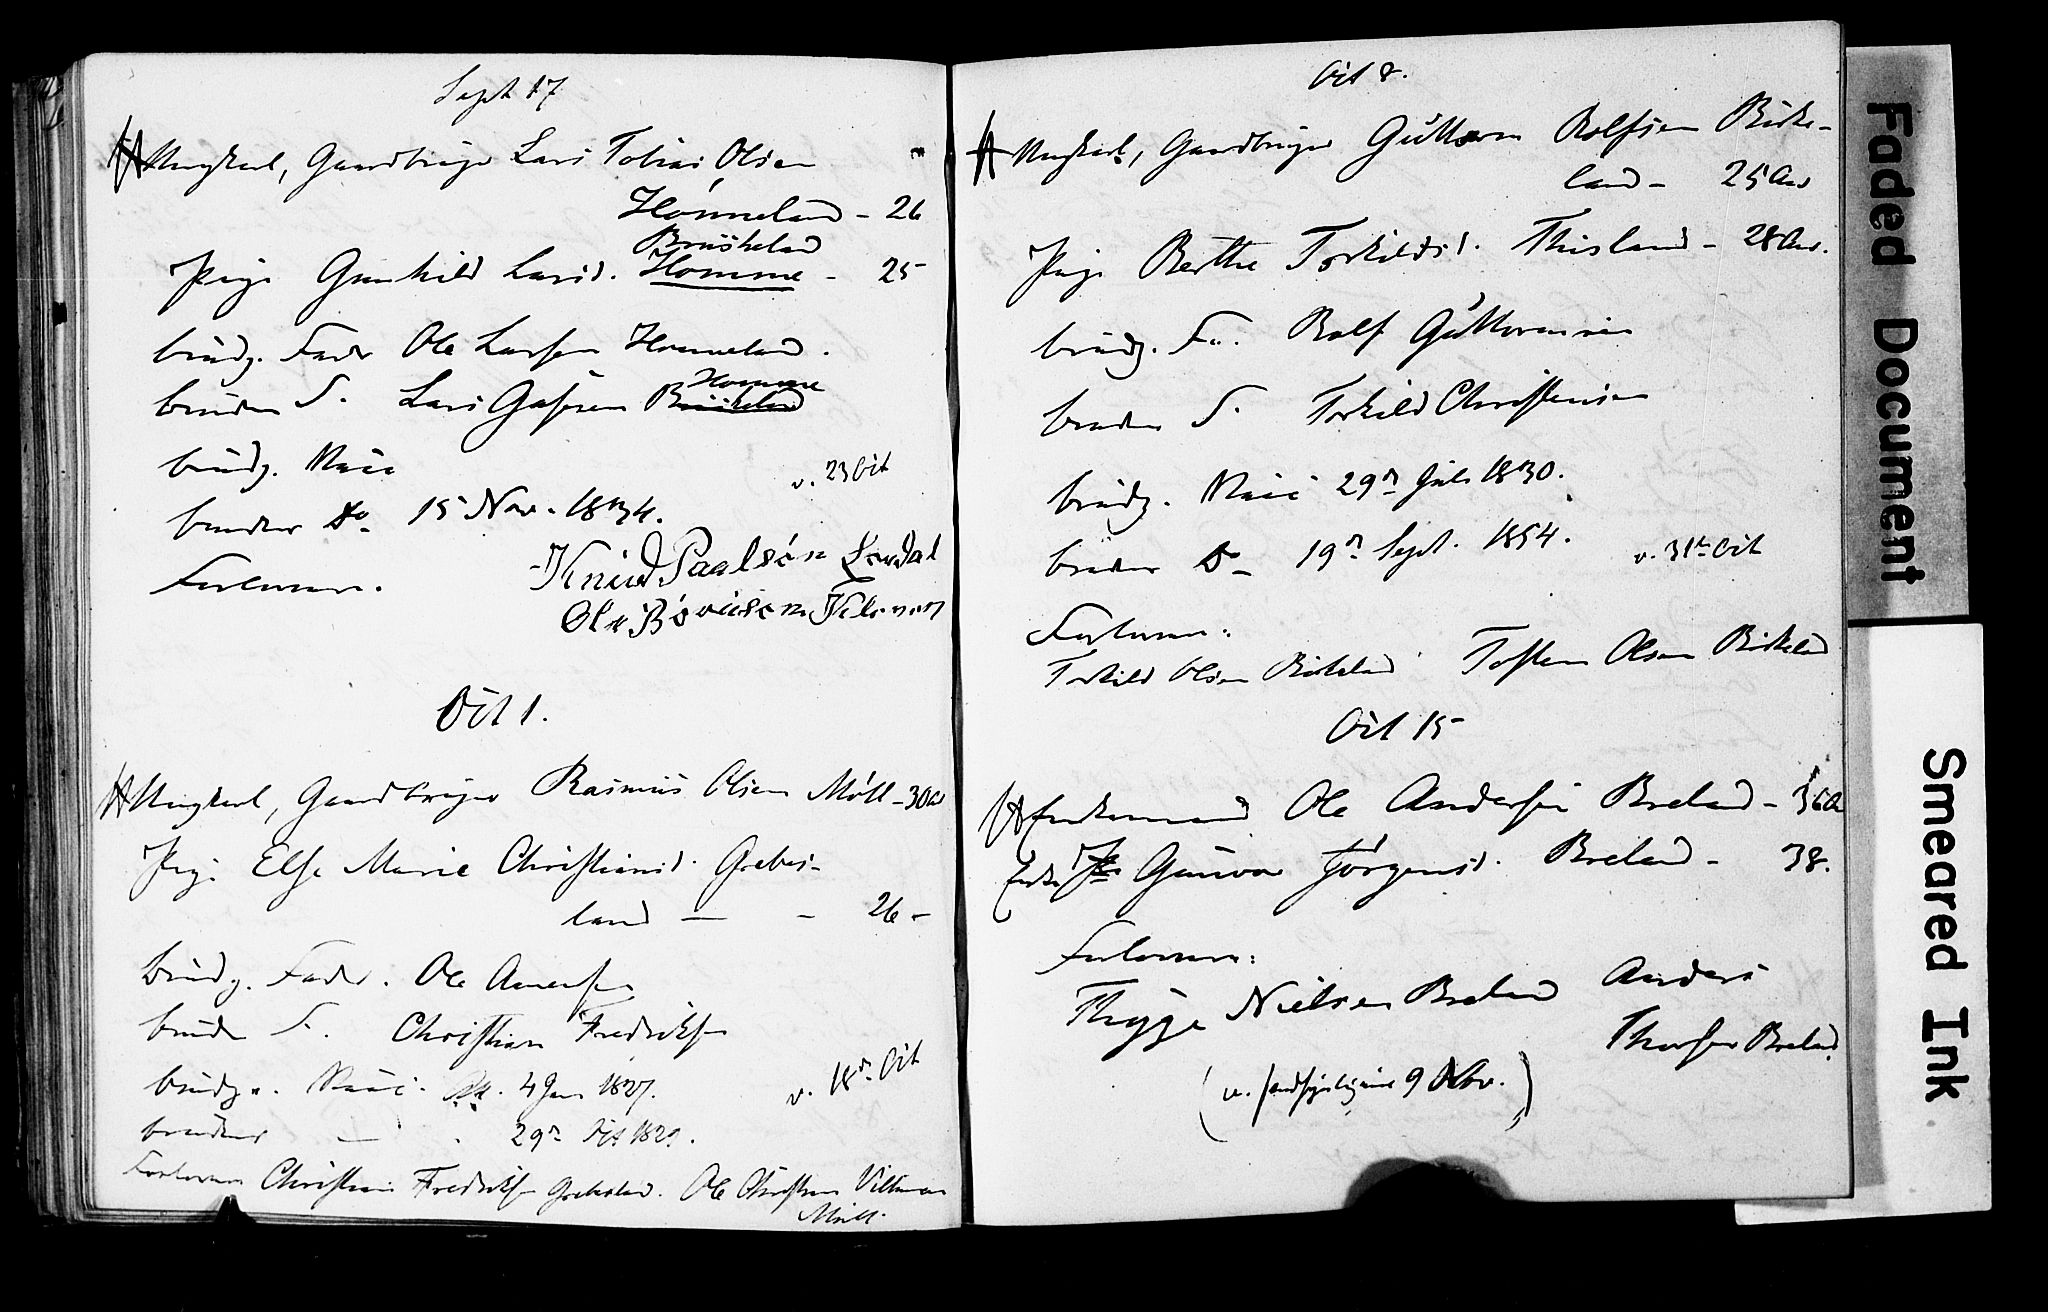 Sept 17
Ungkarl, Gaardbruger Lars Tobias Olsen
Honneland - 26
Bruskeland
Pige Gunhild Larsd. Homme - 25
brudg. Fader Ole Larsen Honneland.
bruden F. Lars Gasesen Homme
brudg. Vacc
v. 23 Oct
bruden Do 15 Nov. 1834.
Forlovere.
Knud Paalsøn Lordal
Ole
Oct 1.
Ungkarl, Gaardbruger Rasmus Olsen Møll - 30 a
Pige Else Marie Christiansd. Grebes-
land - 26 -
brudg. Fader. Ole Aanensen
bruden F. Christian Fredriksen
brudg. Vacc. 4 Jan 1827.
v. 18de Oct
bruden - 29de
Forlovere Christian Fredriksen Grebesland. Ole Christian Villumsen
Møll.
Oct 8.
Ungkarl, Gaardbruger Guttorm Rolfsen Birke-
land - 25 Aar
Pige Berthe Torkildsd. Thisland - 28 Aar.
brudg. Fa. Rolf Guttormsen
bruden F. Torkild Christensen
brudg. Vacc 29de Juli 1830.
bruden Do 19de Sept. 1854.
v. 31te Oct
Forlovere:
Torkild Olsen Birkeland Tosten Olsen Birkeland
Oct 15
Enkemand Ole Andersen Breland - 36 a
Enke Gunvor Jörgensd. Breland - 38.
Forlovere:
Thygge Nielsen Breland Anders
Breland
(v. 9 Nov.)
Faded Document
Smeared Ink